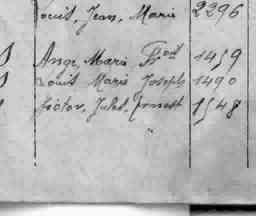 Louis, Jean, Marie 2296
Ange, Marie 1459
Louis Marie Joseph 1490
Victor, Jules, Ernest 1548